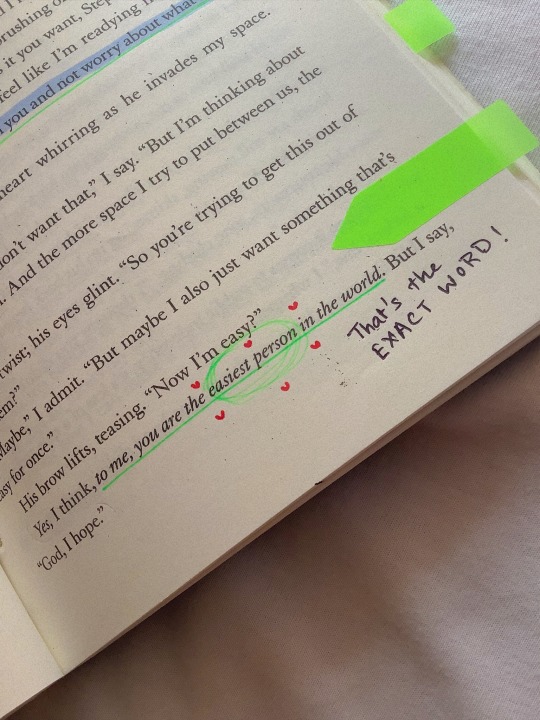 it you want, Step
feel like I'm readying
you and not worry about what
heart whirring as he invades my space.
don't want that," I say. "But I'm thinking about
And the more space I try to put between us, the
twist; his eyes glint. "So you're trying to get this out of
em?"
Maybe," I admit. "But maybe I also just want something that's
asy for once."
His brow lifts, teasing. "Now I'm easy?"
Yes, I think, to me, you are the easiest person in the world. But I say,
"God, I hope."
That's the
EXACT WORD!